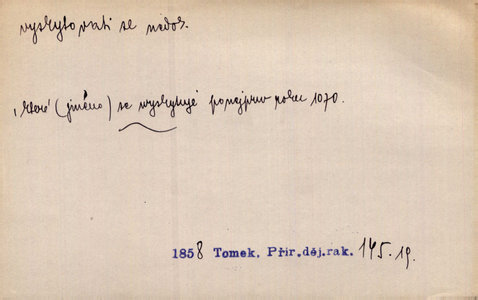 vyskytovati se nedok.
, které (jméno) se wyskytuje ponejprw roku 1070.
1858 Tomek. Přír.děj.rak. 145.19.